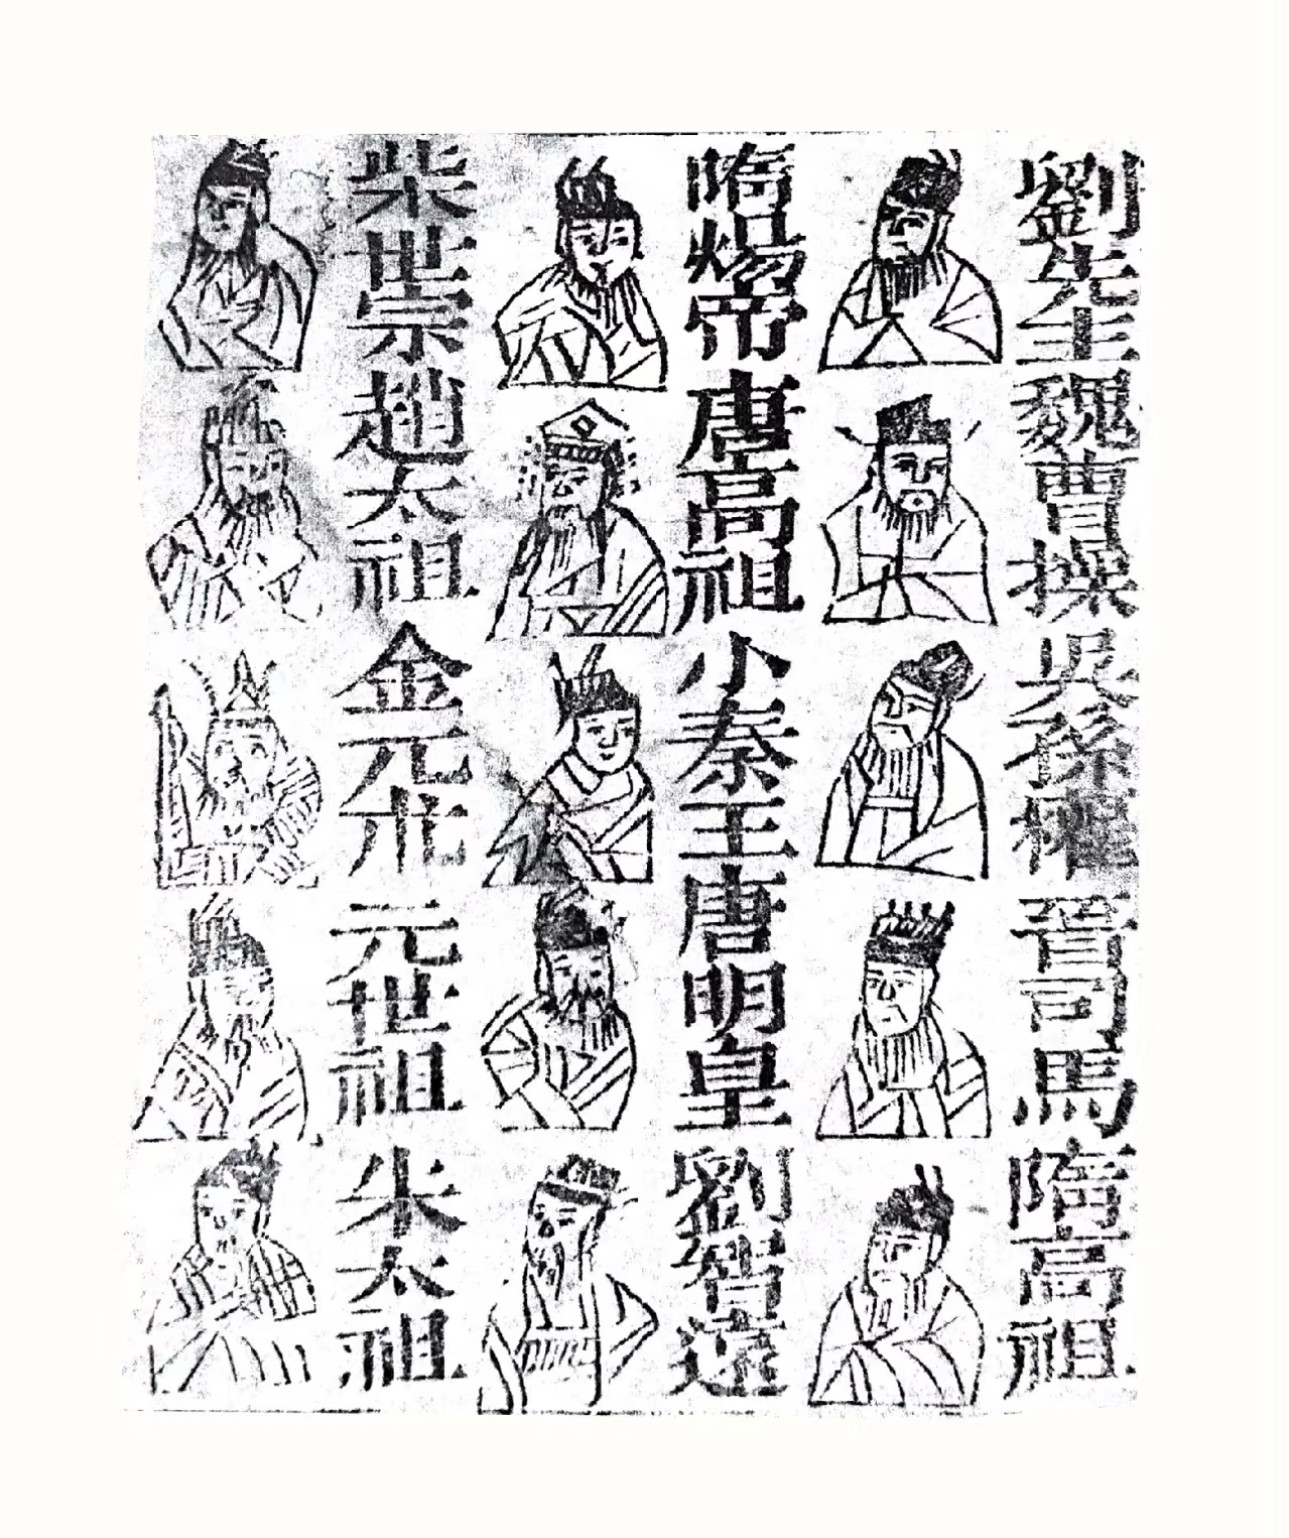 劉先主魏曹操吳孫權晉司馬隋高祖
隋煬帝唐高祖小秦王唐明皇劉智遠
柴世宗趙太祖金元朮元世祖朱太祖